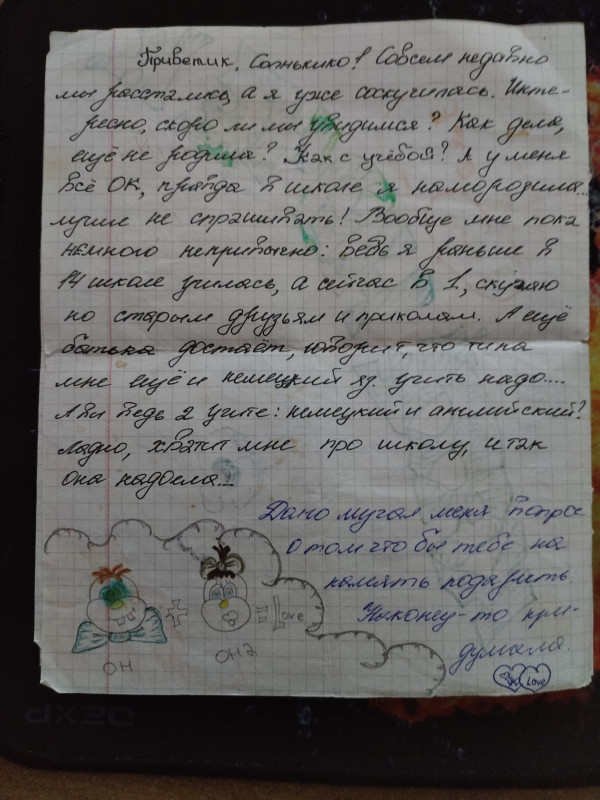 Приветик, Санькико! Совсем недавно
мы расстались, а я уже соскучилась. Инте-
ресно, скоро ли мы увидимся? Как дела,
ещё не родила? Как с учёбой? А у меня
всё ОК, правда в школе я наморозила...
лучше не спрашивать! Вообще мне пока
немного непривычно: ведь я раньше в
14 школе училась, а сейчас в 1, скучаю
по старым друзьям и приколам. А ещё
батька достаёт, говорит, что типа
мне ещё и немецкий яз. учить надо....
А вы ведь 2 учите: немецкий и английский?
Ладно, хватит мне про школу, итак
она надоела...
Давно мучал меня вопрос
о том что бы тебе на
память подарить.
Наконец-то при-
думала.
Love
ОН
ОНА
Love
DEXP